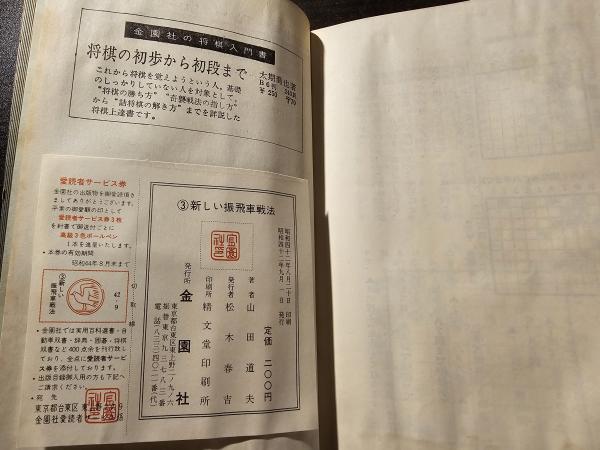 金園社の将棋入門書
将棋の初歩から初段まで
これから将棋を覚えようという人、基礎
のしっかりしていない人を対象として、
“将棋の勝ち方”“奇襲戦法の指し方”
から“詰将棋の解き方”までを詳説した
将棋上達書です。
B6判
¥250
〒70
愛読者サービス券
金園社の出版物を御愛読頂き
ましてありがとうございます。
平素の御愛顧の印として
愛読者サービス券3枚
を封書で御送付ごとに
高級3色ボールペン
1本を進呈いたします。
・本券の有効期間
昭和44年8月末まで
③新しい
振飛車戦法
42・9
切取線
・金園社では実用百科選書・自
動車双書・辞典・囲碁・将棋
双書など400点余を刊行致し
ており、全点に愛読者サービ
ス券を添付しております。
・出版目録御入用の方も下記へ
ご請求ください。
・宛先
東京都台東区東上野
金園社愛読者サービス係
③新しい振飛車戦法
昭和四十二年八月二十日 印刷
昭和四十二年九月一日 発行
定価 二〇〇円
著者 山田道夫
発行者 松木春吉
印刷所 精文堂印刷所
発行所 金園社
東京都台東区東上野二ノ九六
振替東京九三七八三番
電話(八三三)四〇二一番(代)